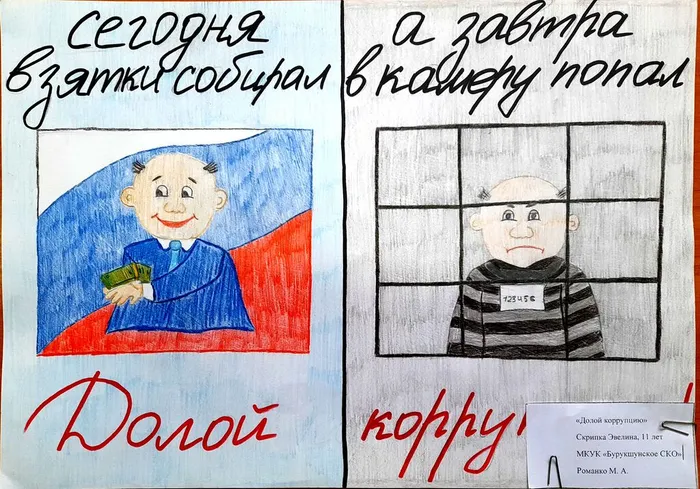 сегодня
взятки собирал
Долой
а завтра
в камеру попал
123456
корру !
«Долой коррупцию»
Скрипка Эвелина, 11 лет
МКУК «Бурукшунское СКО»
Романко М. А.